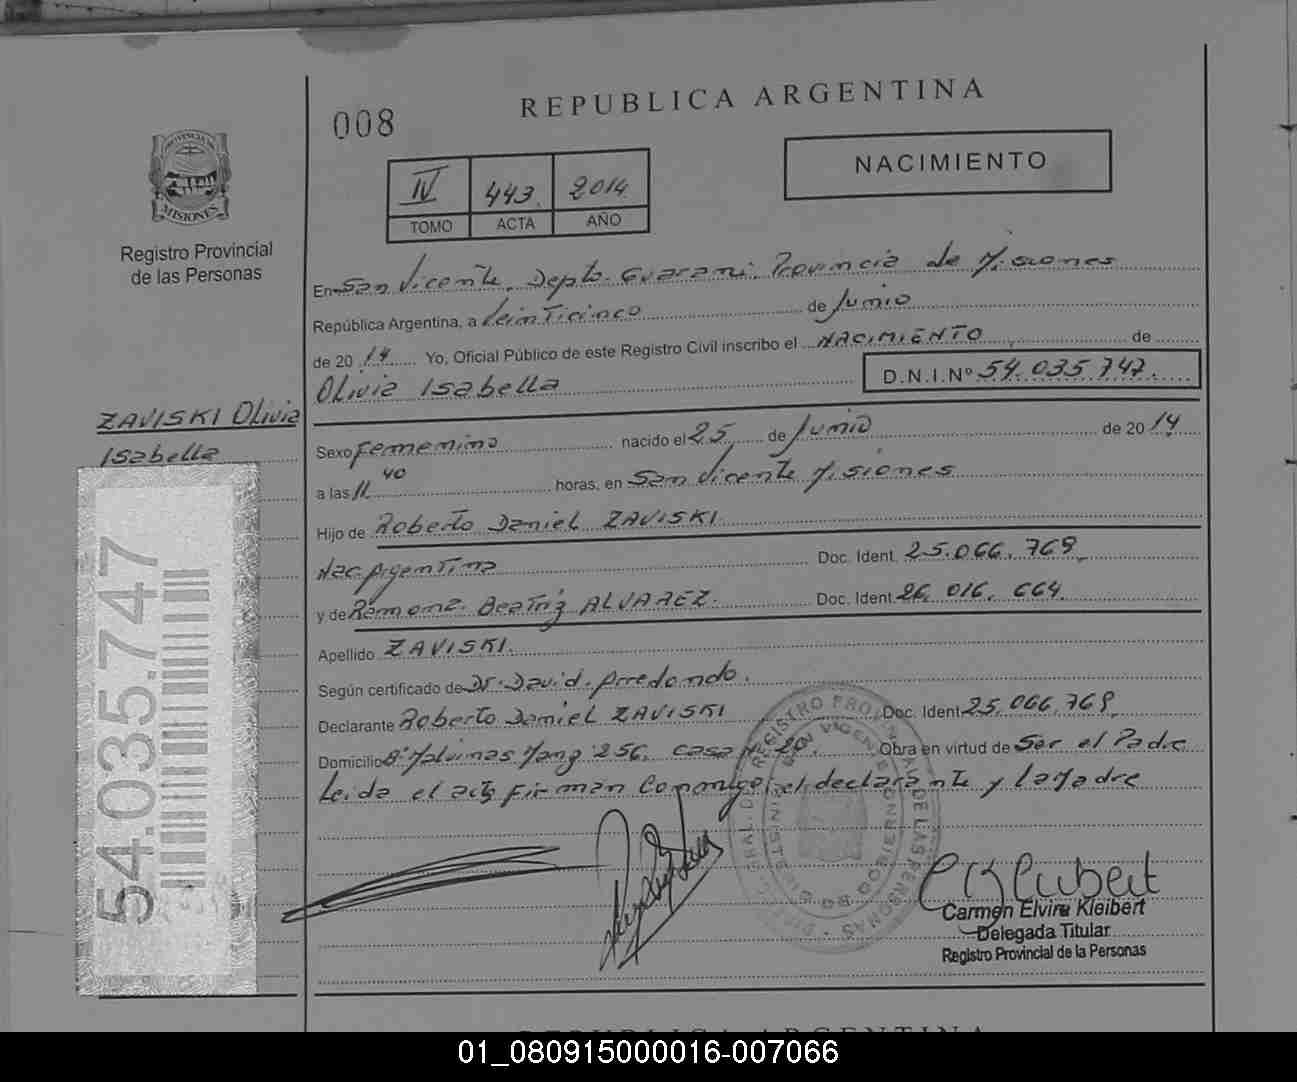 008
REPUBLICA ARGENTINA
NACIMIENTO
IV 443. 2014
TOMO ACTA AÑO
PROVINCIA DE
MISIONES
Registro Provincial
de las Personas
En San Vicente, Depto. Guarani, Provincia de Misiones
República Argentina, a Veinticinco de Junio
de 20 14 Yo, Oficial Público de este Registro Civil inscribo el NACIMIENTO de
Olivia Isabella
D.N.I.Nº 54.035.747.
ZAVISKI Olivia
Isabella
Sexo Femenino nacido el 25 de Junio de 20 14
a las 11 40 horas, en San Vicente Misiones
Hijo de Roberto Daniel ZAVISKI
Nac. Argentina Doc. Ident. 25.066.769
y de Ramona Beatriz ALVAREZ. Doc. Ident. 26.016.664
Apellido ZAVISKI.
Según certificado de Dr. David Arredondo.
Declarante Roberto Daniel ZAVISKI Doc. Ident. 25.066.769
Domicilio Bº Malvinas Mang 256, casa Nº 20. Obra en virtud de Ser el Padre
Leida el acta firman Conmigo el declarante y la Madre
54.035.747
Carmen Elvira Kleibert
Delegada Titular
Registro Provincial de la Personas
REPUBLICA ARGENTINA
01_080915000016-007066